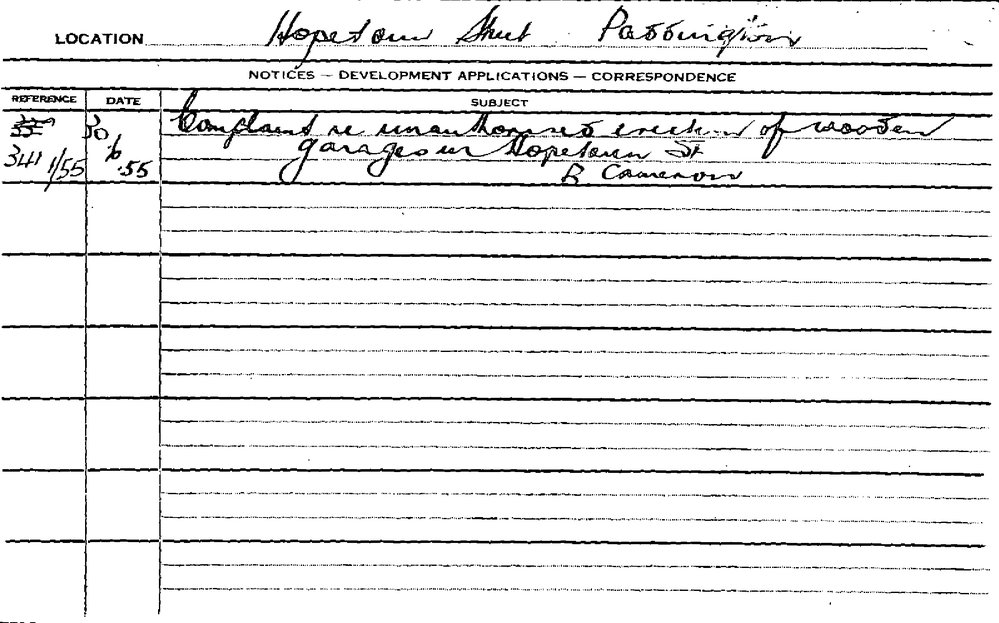 LOCATION Hopetoun Street Paddington
NOTICES — DEVELOPMENT APPLICATIONS — CORRESPONDENCE
REFERENCE DATE SUBJECT
30 Complaint re unauthorised erection of wooden
341 1/55 6 garages in Hopetoun St
.55 R Cameron